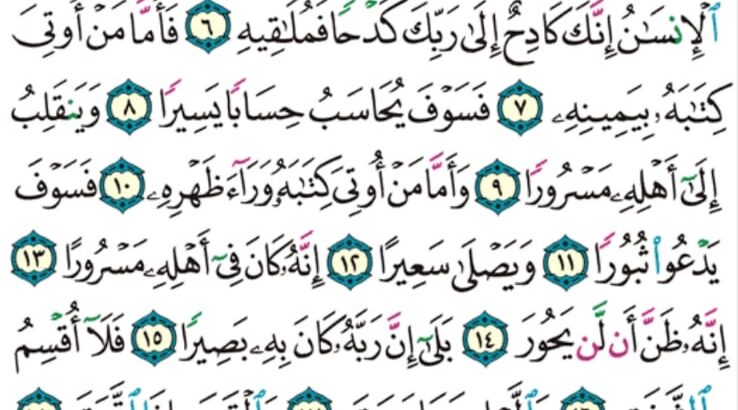 ٱلْإِنسَـٰنُ إِنَّكَ كَادِحٌ إِلَىٰ رَبِّكَ كَدْحًا فَمُلَـٰقِيهِ ٦ فَأَمَّا مَنْ أُوتِىَ
كِتَـٰبَهُۥ بِيَمِينِهِۦ ٧ فَسَوْفَ يُحَاسَبُ حِسَابًا يَسِيرًا ٨ وَيَنقَلِبُ
إِلَىٰٓ أَهْلِهِۦ مَسْرُورًا ٩ وَأَمَّا مَنْ أُوتِىَ كِتَـٰبَهُۥ وَرَآءَ ظَهْرِهِۦ ١٠ فَسَوْفَ
يَدْعُوا۟ ثُبُورًا ١١ وَيَصْلَىٰ سَعِيرًا ١٢ إِنَّهُۥ كَانَ فِىٓ أَهْلِهِۦ مَسْرُورًا ١٣
إِنَّهُۥ ظَنَّ أَن لَّن يَحُورَ ١٤ بَلَىٰٓ إِنَّ رَبَّهُۥ كَانَ بِهِۦ بَصِيرًا ١٥ فَلَآ أُقْسِمُ